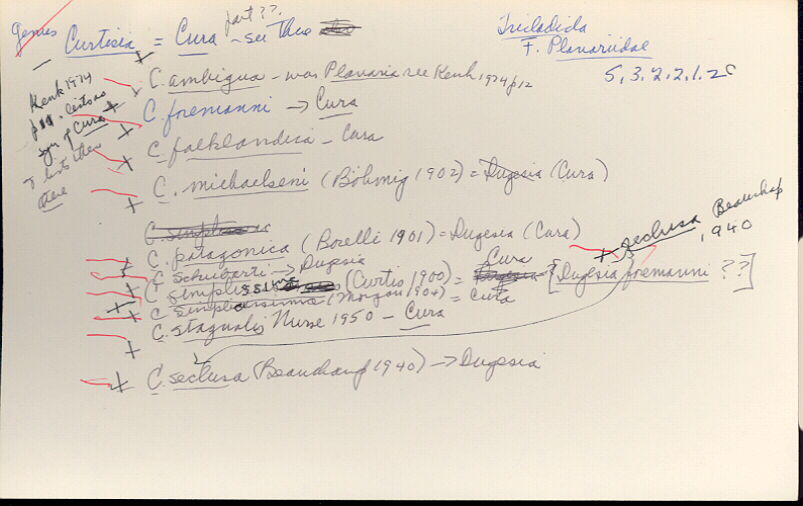 Genus Curtisia = Cura - see there
part ??.
Tricladida
F. Planariidae
5, 3, 2, 2, 1, 2c
Kenk 1974
p 11. lists as
syn of Cura
& lists them
there
C. ambigua - was Planaria see Kenk 1974 p12
C. foremanni → Cura
C. falklandica - Cura
C. michaelseni (Böhmig 1902) = Dugesia (Cura)
C. simplissima
C. patagonica (Borelli 1901) = Dugesia (Cura)
seclusa Beauchap
1940
C. Schubarti → Dugesia
C. simplississima (Curtis 1900) = Cura [Dugesia foremanni ??]
C. simplicissima (Morgan 1904) = Cura
C. stagnalis Nurse 1950 - Cura
C. seclusa (Beauchamp 1940) → Dugesia